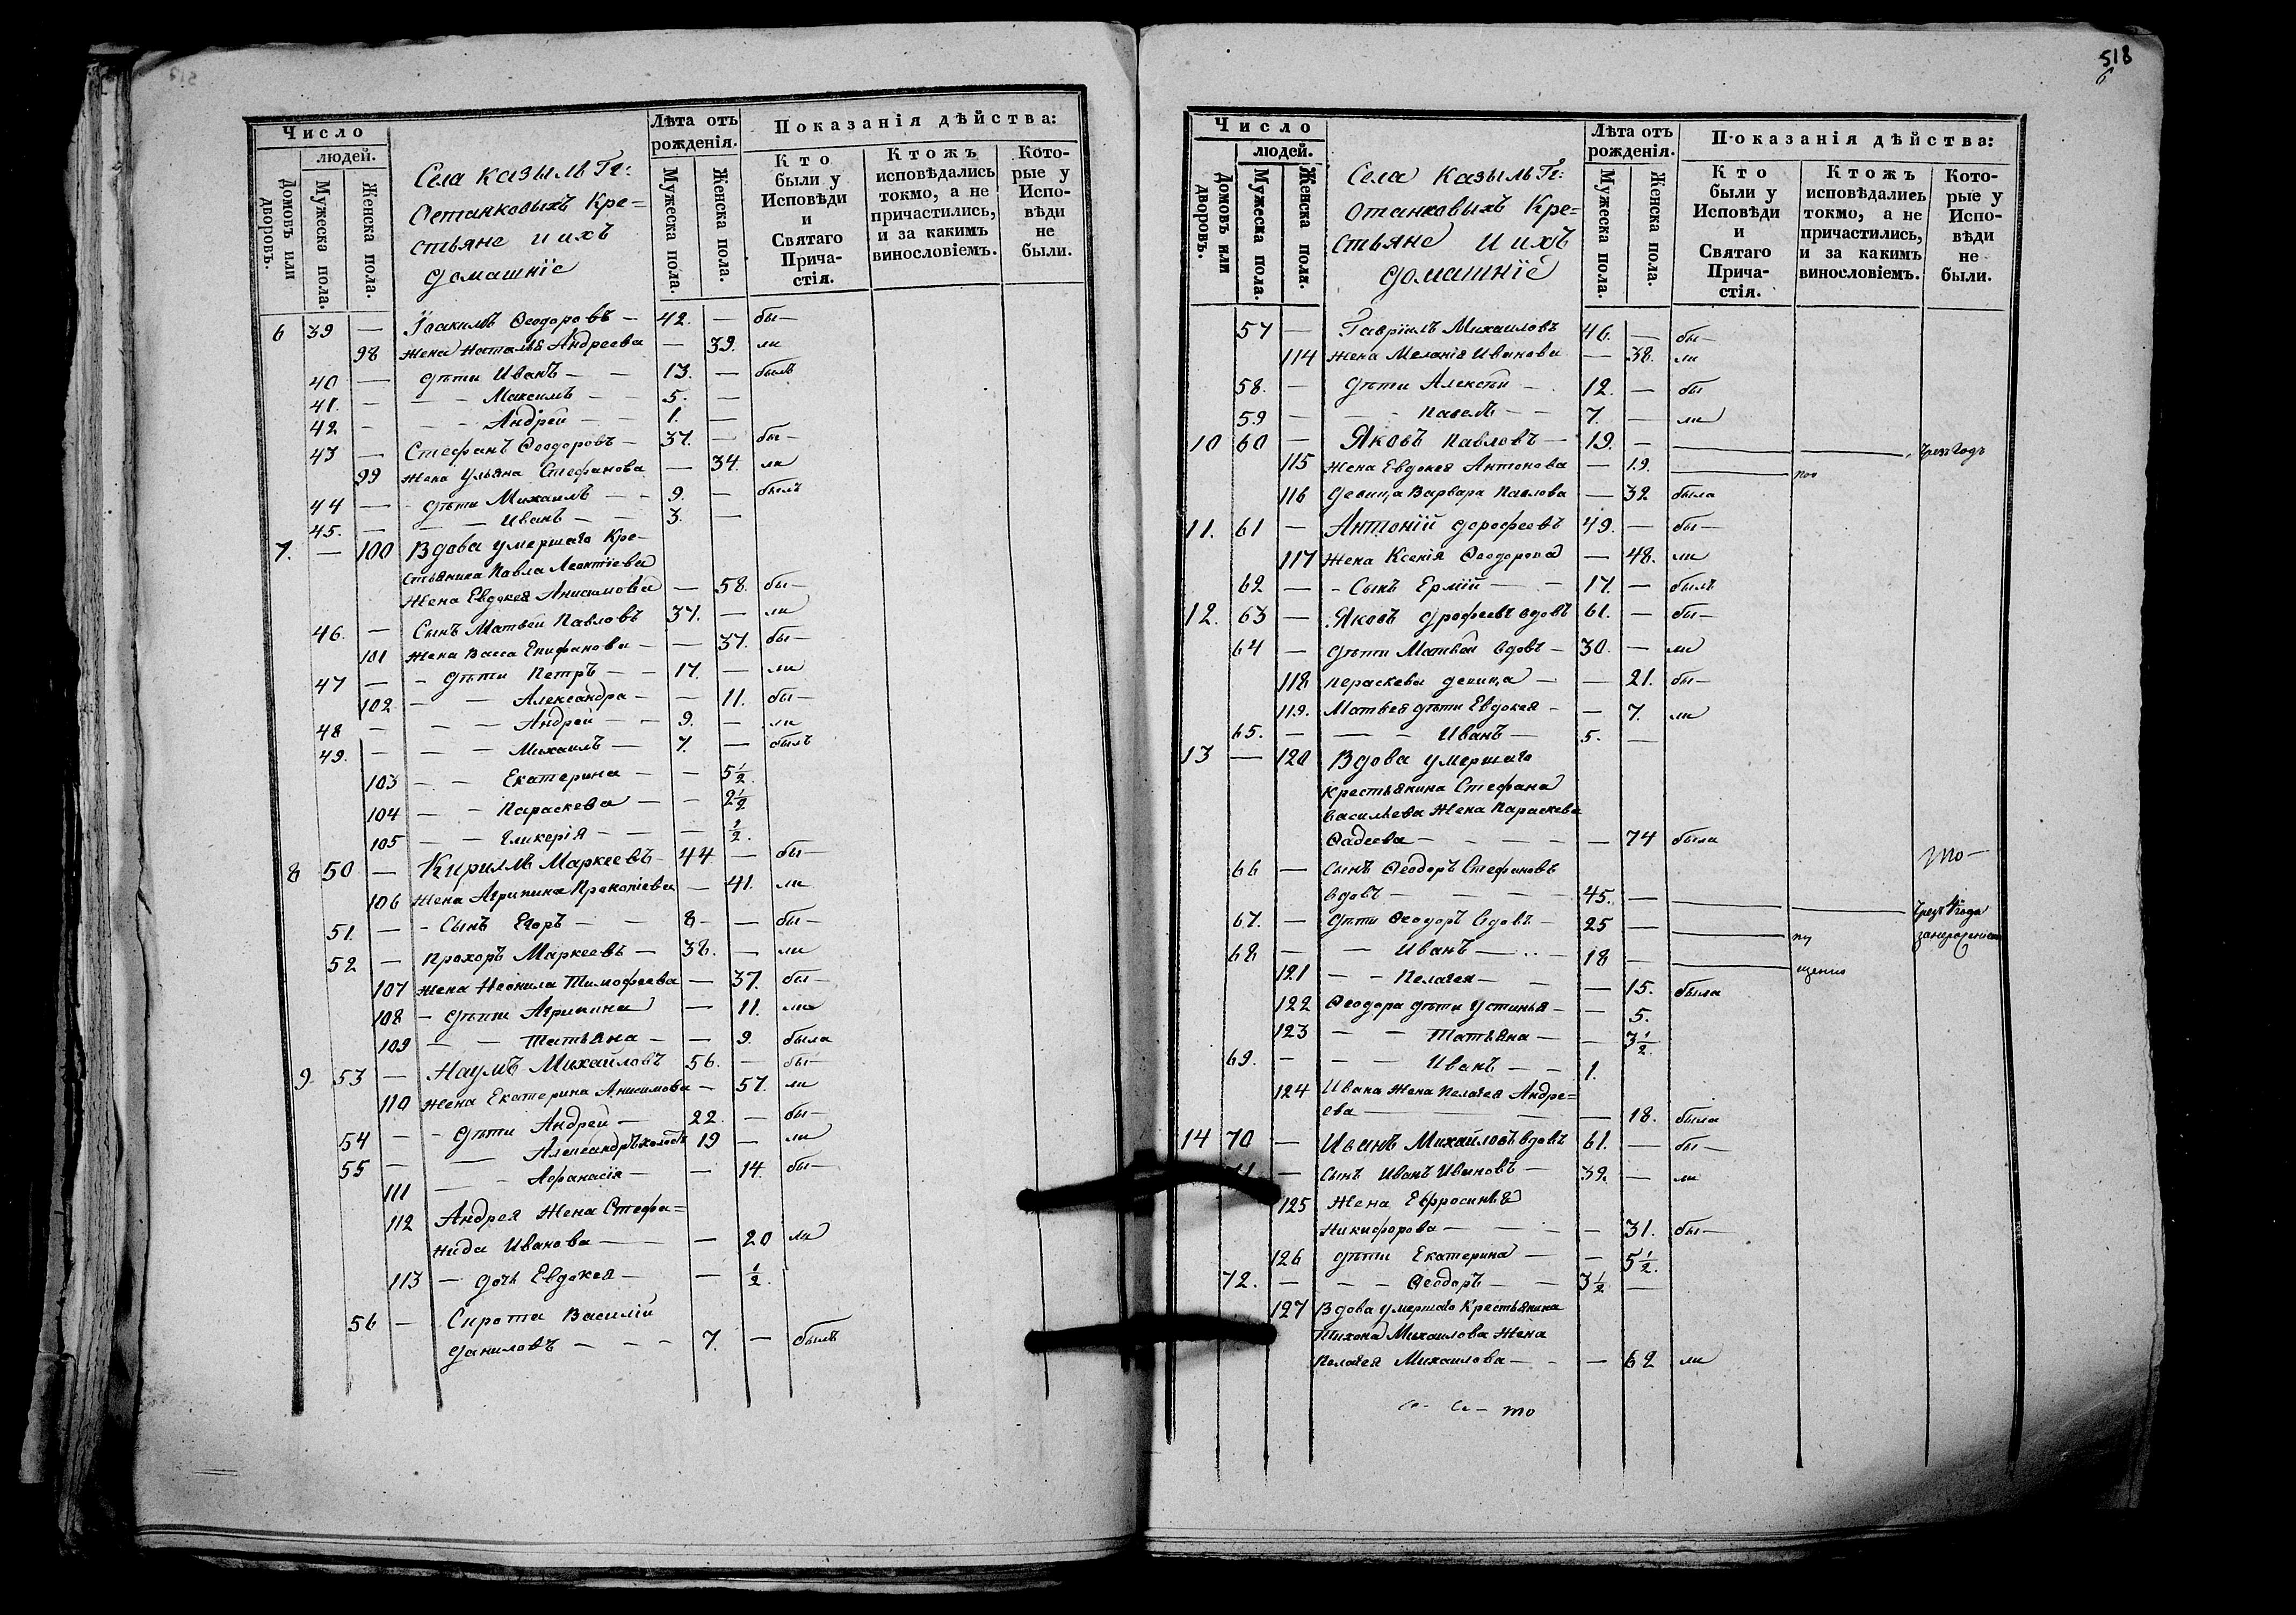 Число
людей.
Домовъ или дворовъ.
Мужеска пола.
Женска пола.
Села Казыль Гг:
Останковыхъ Кре=
стьяне и ихъ
домашніе
Лѣта отъ рожденія.
Мужеска пола.
Женска пола.
Показанія дѣйства:
Кто были у Исповѣди и Святаго Причастія.
Ктожъ исповѣдались токмо, а не причастились, и за какимъ винословіемъ.
Которые у Исповѣди не были.
6 39 — Іоакимъ Ѳеодоровъ — 42. — бы—
98 Жена Наталья Андреева — 39. ли
40 — дѣти Иванъ — — 13. — былъ
41. — — — Максимъ — — 5. —
42 — — — Андрей — — 1. —
43 — Стефанъ Ѳеодоровъ — 37. — бы—
99 Жена Ульяна Стефанова — 34. ли
44 — дѣти Михаилъ — — 9. — былъ
45. — — — Иванъ — — 3. —
7. — 100 Вдова умершаго Кре-
стьянина Павла Леонтіева
Жена Евдокея Анисимова — 58. бы—
46. — Сынъ Матвей Павловъ 37. — ли
101 Жена Васса Епифанова — — 37. бы—
47 — — дѣти Петръ — — 17. — ли
102 — — Александра — — 11. бы—
48 — — — Андрей — — 9. — ли
49. — — — Михаилъ — 7. — былъ
103 — — Екатерина — — 5½.
104 — — Параскева — — 2½
105 — — Гликерія — — — ½.
8 50 — Кириллъ Маркеевъ — 44 — бы—
106 Жена Агрипина Прокопіева — 41. ли
51. — — Сынъ Егоръ — — 8 — — бы—
52 — Прохоръ Маркеевъ — 38. — ли
107 Жена Неонила Тимофеева — 37. бы—
108 — дѣти Агрипина — 11. ли
109 — — Татьяна — — 9. была
9. 53 — Наумъ Михайловъ 56. — бы—
110 Жена Екатерина Анисимова — 57. ли
54 — — дѣти Андрей — 22. — бы—
55 — — Александръ холостъ 19 — ли
111 — — Афанасія — — 14. бы—
112 Андрея Жена Стефа=
нида Иванова — — — 20 ли
113 — дочь Евдокея — — ½.
56 — Сирота Василій
Даниловъ — — — 7. — былъ
518
6
Число
людей.
Домовъ или дворовъ.
Мужеска пола.
Женска пола.
Села Казыль Гг:
Останковыхъ Кре=
стьяне и ихъ
домашніе
Лѣта отъ рожденія.
Мужеска пола.
Женска пола.
Показанія дѣйства:
Кто были у Исповѣди и Святаго Причастія.
Ктожъ исповѣдались токмо, а не причастились, и за какимъ винословіемъ.
Которые у Исповѣди не были.
57 — Гавріилъ Михаиловъ 46. — бы—
114 Жена Меланія Иванова — 38. ли
58. — дѣти Алексѣй — 12. — бы
59 — — — Павелъ — — 7. — ли
10 60 — Яковъ Павловъ — 19. — Чрезъ Годъ
115 Жена Евдокея Антонова — 19.
116 девица Варвара Павлова — 32 была
11. 61 — Антоній Дорофеевъ 49. — бы—
117 Жена Ксенія Ѳеодорова — 48. ли
62 — — Сынъ Ермій — — 17. — былъ
12. 63 — Яковъ Дрофеевъ вдовъ 61. — бы—
64 — дѣти Матвей вдовъ — 30. — ли
118 Пераскева девица — — 21. бы—
119. Матвея дѣти Евдокея — — 7. ли
65. — — — Иванъ — 5. —
13 — 120 Вдова умершаго
Крестьянина Стефана
Васильева Жена Параскева
Фадеева — — — — — 74 была
66 — Сынъ Ѳеодоръ Стефановъ
вдовъ — — — 45. —
67. — дѣти Ѳеодоръ вдовъ — 25 —
68 — — Иванъ — — 18 —
121 — — Пелагея — — — 15. была
122 Ѳеодора дѣти Устинья — — 5.
123 — — Татьяна — — 3½.
69. — — — Иванъ — — 1.
124 Ивана Жена Пелагея Андре=
ева — — — — 18. была
14 70 — Иванъ Михайловъ вдовъ 61. — бы—
— Сынъ Иванъ Ивановъ — 32. — ли
125 Жена Ефросинья
Никифорова — — — — 31. бы—
126 дѣти Екатерина — — 5½.
72. — — — Ѳеодоръ — — 3½ —
127 Вдова умершаго Крестьянина
Тихона Михаилова Жена
Пелагея Михаилова — — — 62 ли